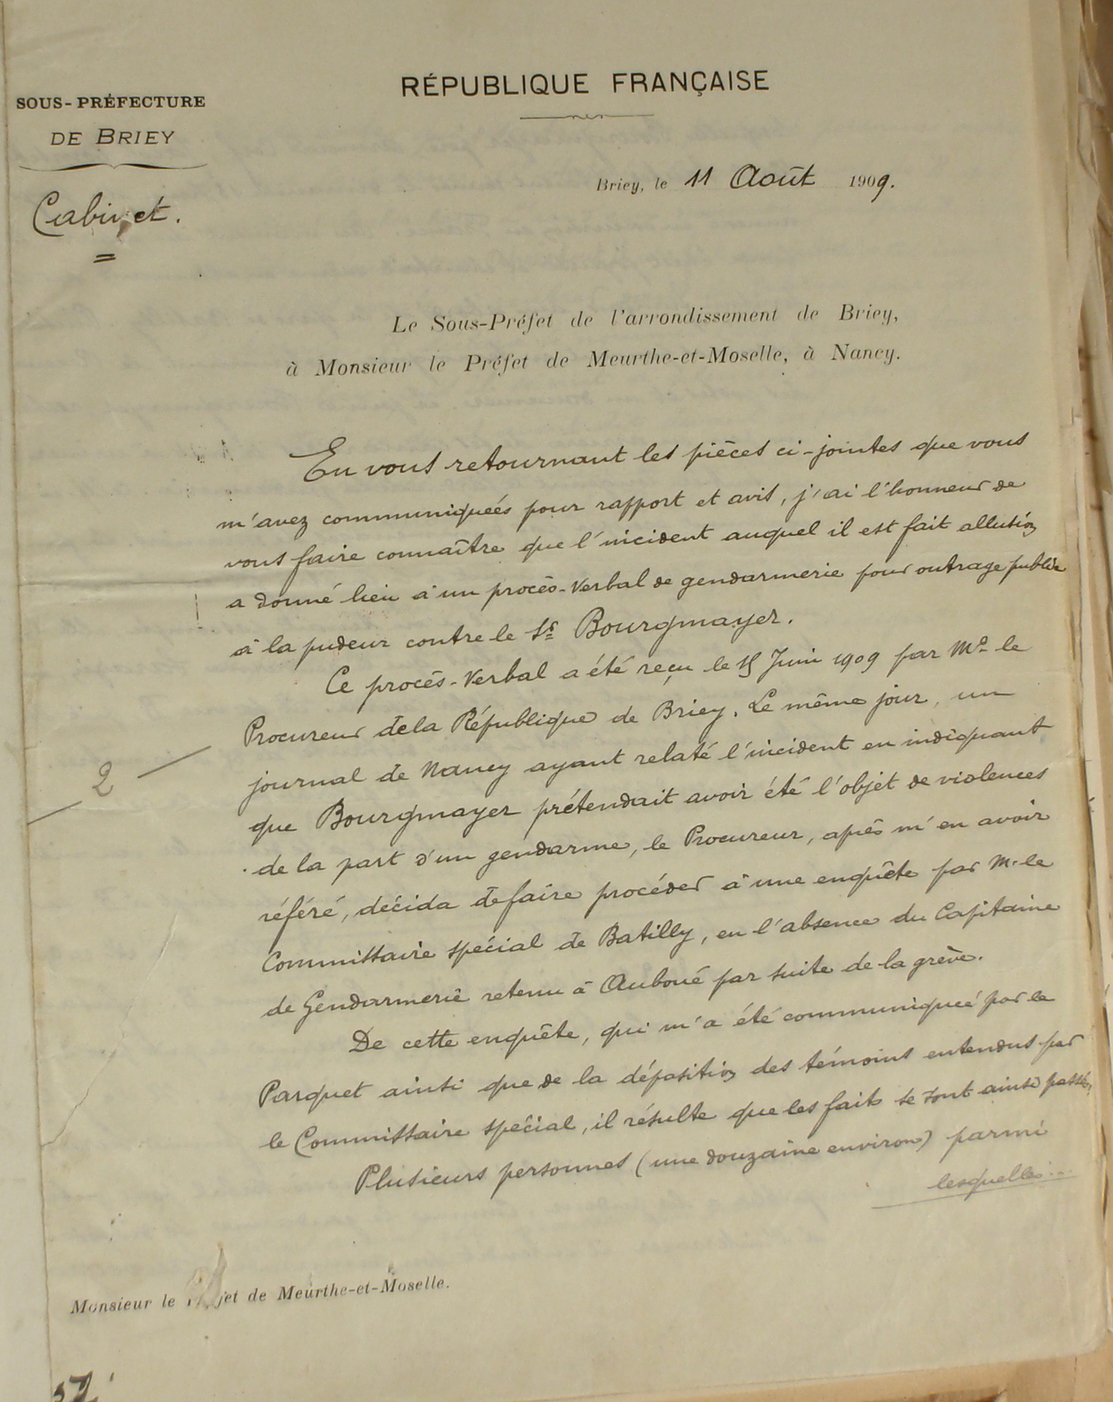 RÉPUBLIQUE FRANÇAISE
SOUS-PRÉFECTURE
DE BRIEY
Cabinet.
Briey, le 11 Août 1909.
Le Sous-Préfet de l'arrondissement de Briey,
à Monsieur le Préfet de Meurthe-et-Moselle, à Nancy.
En vous retournant les pièces ci-jointes que vous
m'avez communiqueés pour rapport et avis, j'ai l'honneur de
vous faire connaître que l'incident auquel il est fait allusion
a donné lieu à un procès-verbal de gendarmerie pour outrage public
à la pudeur contre le Sr Bourgmayer.
Ce procès-verbal a été reçu le 15 Juin 1909 par Mr le
Procureur de la République de Briey. Le même jour, un
journal de Nancy ayant relaté l'incident en indiquant
que Bourgmayer prétendait avoir été l'objet de violences
de la part d'un gendarme, le Procureur, après m'en avoir
référé, décida de faire procéder à une enquête par M. le
Commissaire spécial de Batilly, en l'absence du Capitaine
de Gendarmerie retenu à Auboué par suite de la grève.
De cette enquête, qui m'a été communiqueé par le
Parquet ainsi que de la déposition des témoins entendus par
le Commissaire spécial, il résulte que les faits se sont ainsi passés,
Plusieurs personnes (une douzaine environ) parmi
lesquelles...
2
Monsieur le Préfet de Meurthe-et-Moselle.
52